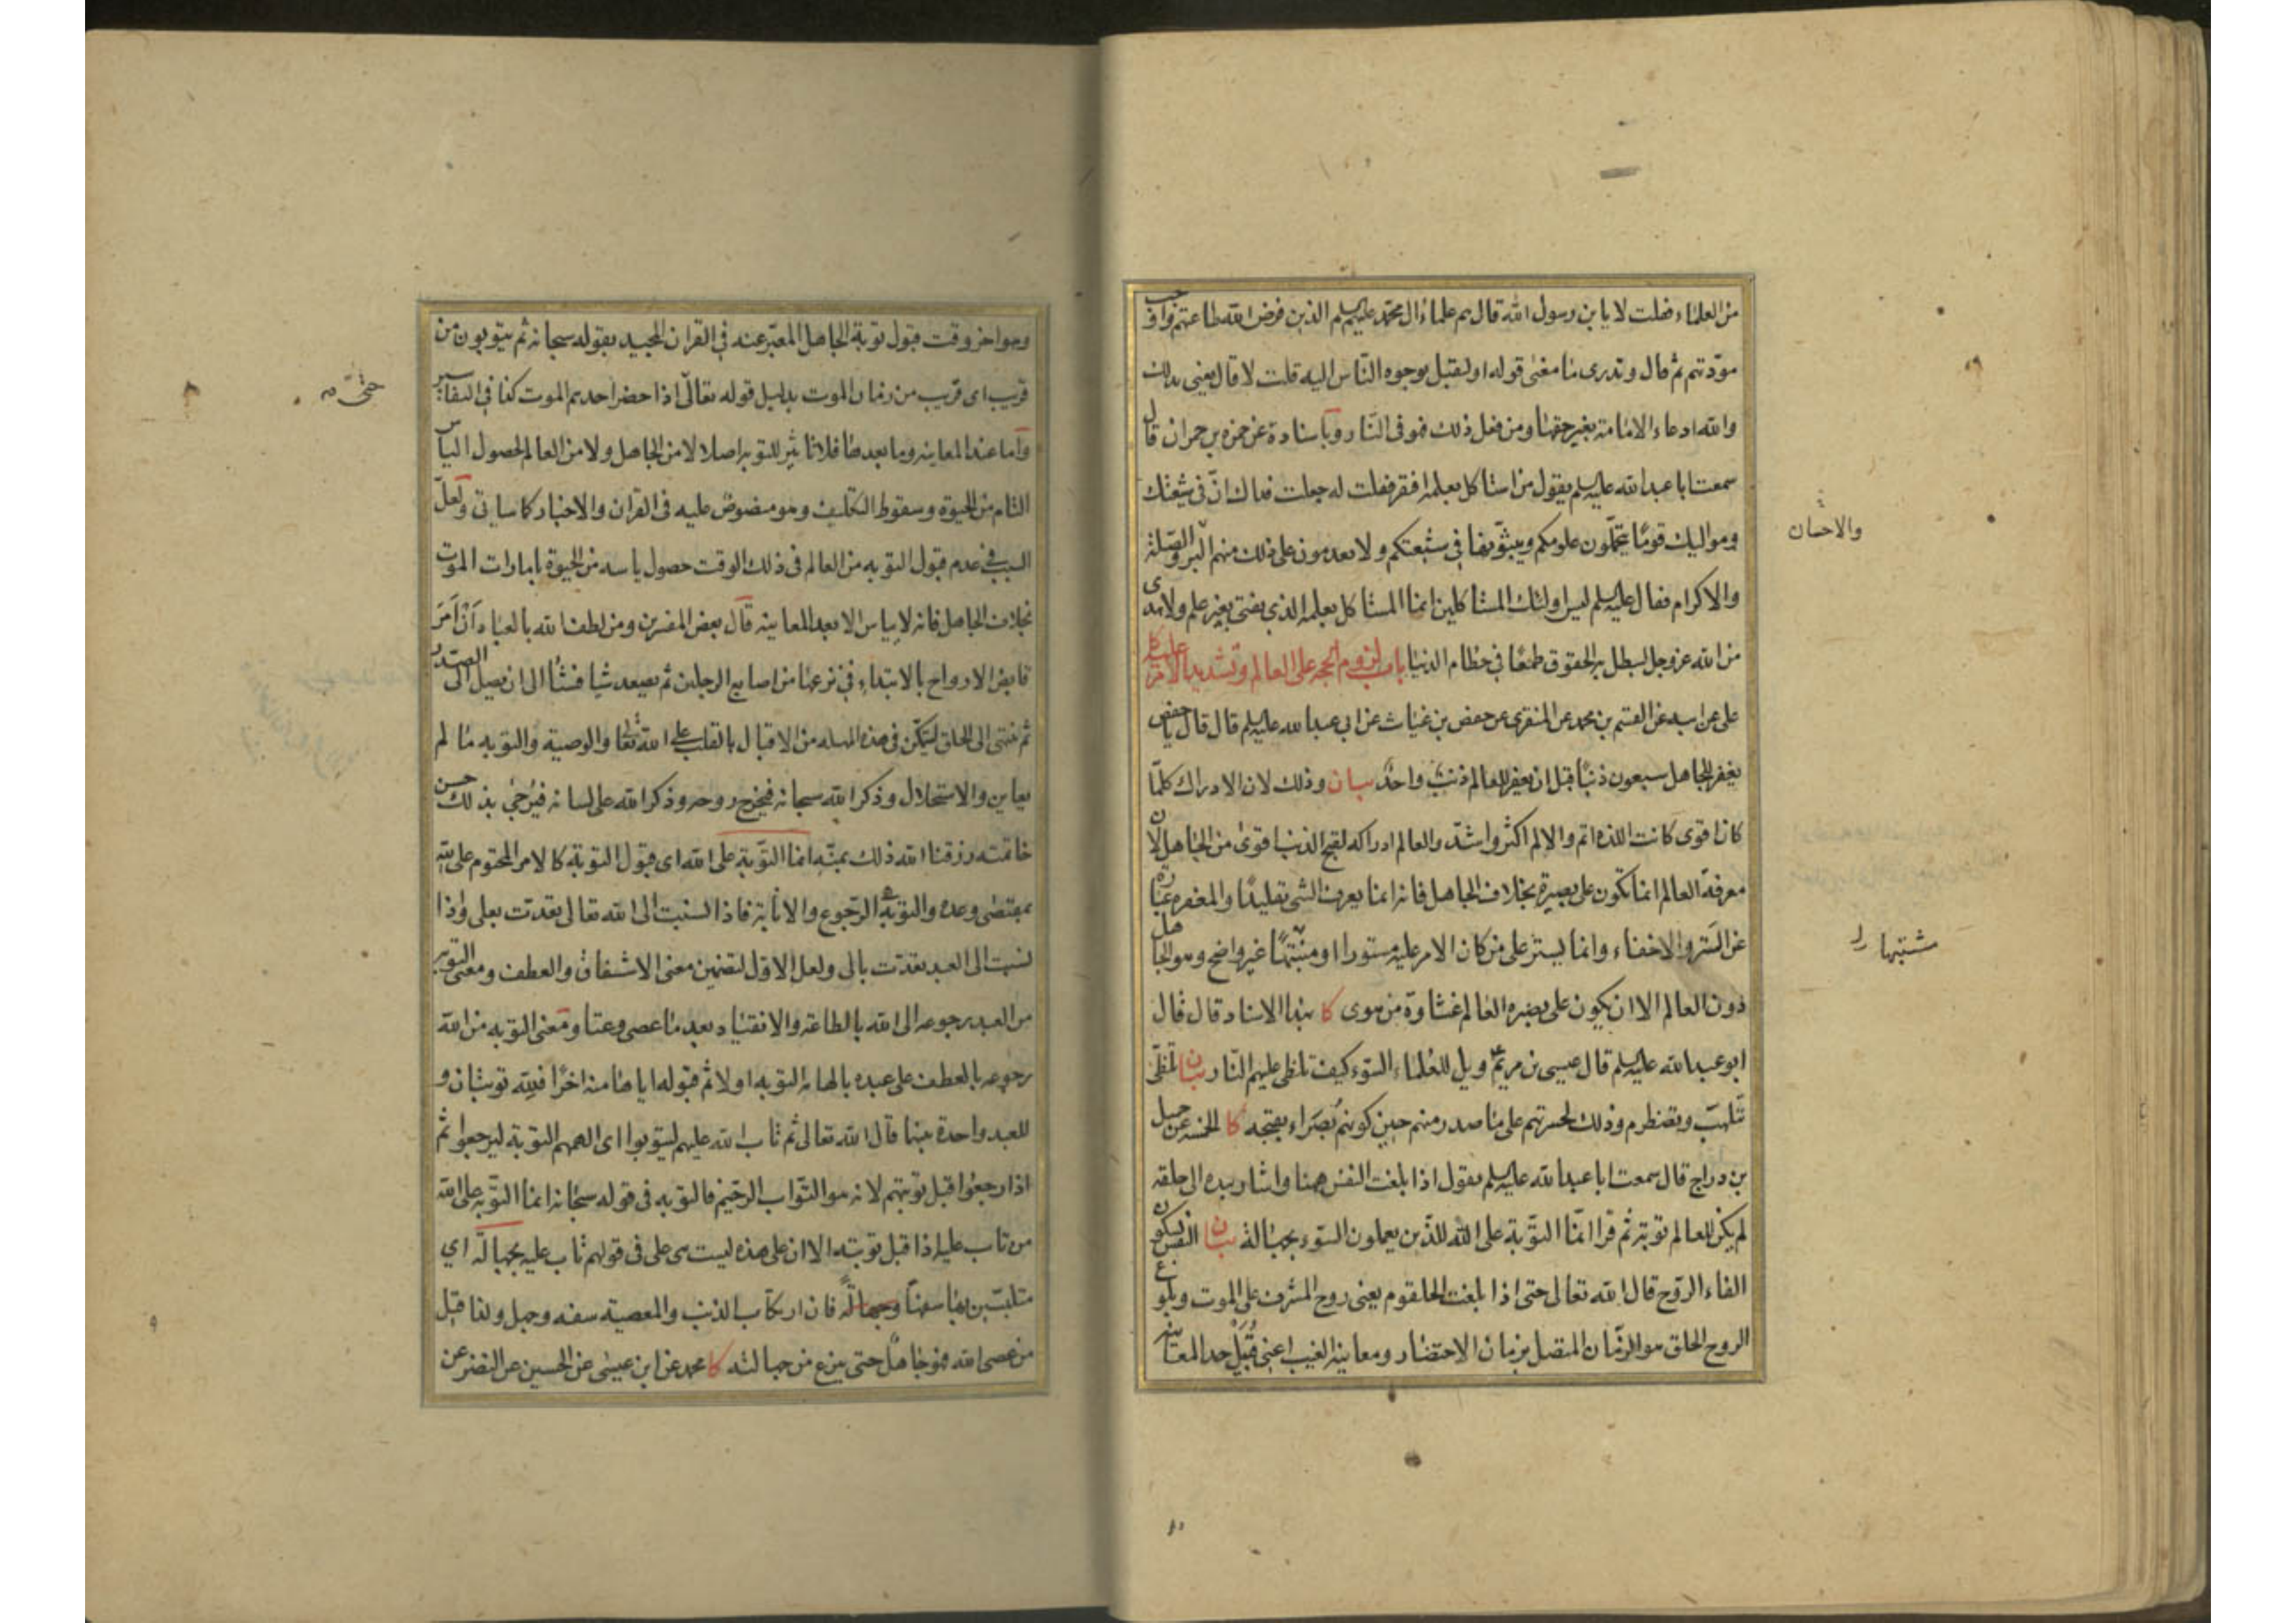 من العلماء فقلت لا يا بن رسول الله قال هم علماء ال محمد عليهم السلم الذين فرض الله طاعتهم واوجب
مودتهم ثم قال وتدرى ما معنى قوله او ليقبل بوجوه الناس اليه قلت لا قال يعنى بذلك
والله ادعاء الامامة بغير حقها ومن فعل ذلك فهو فى النار وباسناده عن حمزه بن حمران قال
سمعت ابا عبد الله عليه السلم يقول من استاكل بعلمه افتقر فقلت له جعلت فداك ان فى شيعتك
ومواليك قوما يتحملون علومكم ويبثونها فى شيعتكم ولا يعدمون على ذلك منهم البر والصلة
والاحسان
والاكرام فقال عليه السلم ليس اولئك المستاكلين انما المستاكل بعلمه الذى يفتى بغير علم ولا هدى
من الله عز وجل ليبطل به الحقوق طمعا فى حطام الدنيا باب لزوم الحجه على العالم وتشديد الامر عليه كا
على عن ابيه عن القسم بن محمد عن المنقرى عن حفص بن غياث عن ابى عبد الله عليه السلم قال قال يا حفص
يغفر للجاهل سبعون ذنبا قبل ان يغفر للعالم ذنب واحد بيان وذلك لان الادراك كلما
كان اقوى كانت اللذه اتم والالم اكثر واشد والعالم ادراكه لقبح الذنب اقوى من الجاهل لان
معرفة العالم انما تكون على بصيرة بخلاف الجاهل فانه انما يعرف الشى تقليدا والمغفره عبارة
عن الستر والاخفاء وانما يستر على من كان الامر عليه مستورا او مشتبها غير واضح وهو الجاهل
مشتبها
دون العالم الا ان يكون على بصيره العالم غشاوة من هوى كا بهذا الاسناد قال قال
ابو عبد الله عليه السلم قال عيسى بن مريم ع ويل للعلماء السوء كيف تلظى عليهم النار بيان تلظى
تتلهب وتضطرم وذلك لحسرتهم على ما صدر منهم حين كونهم بصراء بقبحه كا الخمسه عن جميل
بن دراج قال سمعت ابا عبد الله عليه السلم يقول اذا بلغت النفس ههنا واشار بيده الى حلقه
لم يكن للعالم توبة ثم قرا انما التوبة على الله للذين يعملون السوء بجهالة بيان النفس بسكون
الفاء الروح قال الله تعالى حتى اذا بلغت الحلقوم يعنى روح المشرف على الموت وبلوغ
الروح الحلق هو الزمان المتصل بزمان الاحتضار ومعاينة الغيب اعنى قبيل حد المعاينه
وهو اخر وقت قبول توبة الجاهل المعبر عنه فى القران المجيد بقوله سبحانه ثم يتوبون من
قريب اى قريب من زمان الموت بدليل قوله تعالى اذا حضر احدهم الموت كذا فى التفاسير
حتى
واما عند المعاينه وما بعدها فلا تاثير للتوبه اصلا لا من الجاهل ولا من العالم لحصول الياس
التام من الحيوة وسقوط التكليف وهو منصوص عليه فى القران والاخبار كما ساتى ولعل
السبب فى عدم قبول التوبه من العالم فى ذلك الوقت حصول ياسه من الحيوة بامارات الموت
بخلاف الجاهل فانه لا يياس الا بعد المعاينه قال بعض المفسرين ومن لطف الله بالعباد ان امر
قابض الارواح بالابتداء فى نزعها من اصابع الرجلين ثم يصعد شيا فشيا الى ان يصل الى الصدر
ثم ينتهى الى الحلق ليتمكن فى هذه المهله من الاقبال بالقلب على الله تعا والوصية والتوبه ما لم
يعاين والاستحلال وذكر الله سبحانه فيخرج روحه وذكر الله على لسانه فيرجى بذلك حسن
خاتمته رزقنا الله ذلك بمنه انما التوبة على الله اى قبول التوبة كالامر المحتوم على الله
بمقتضى وعده والتوبة الرجوع والانابة فاذا نسبت الى الله تعالى تعدت بعلى واذا
نسبت الى العبد تعدت بالى ولعل الاول لتضمين معنى الاشفاق والعطف ومعنى التوبه
من العبد رجوعه الى الله بالطاعة والانقياد بعد ما عصى وعتا ومعنى التوبه من الله
رجوعه بالعطف على عبده بالهامه التوبه اولا ثم قبوله اياها منه اخرا فلله توبتان و
للعبد واحدة بينهما قال الله تعالى ثم تاب الله عليهم ليتوبوا اى الهمهم التوبة ليرجعوا ثم
اذا رجعوا قبل توبتهم لانه هو التواب الرحيم فالتوبه فى قوله سبحانه انما التوبه على الله
من تاب عليه اذا قبل توبته الا ان على هذه ليست هى على فى قولهم تاب عليه بجهالة اي
متلبسين بها سفها وجهالة فان ارتكاب الذنب والمعصية سفه وجهل ولذا قيل
من عصى الله فهو جاهل حتى ينزع من جهالته كا محمد عن ابن عيسى عن الحسين عن النضر عن